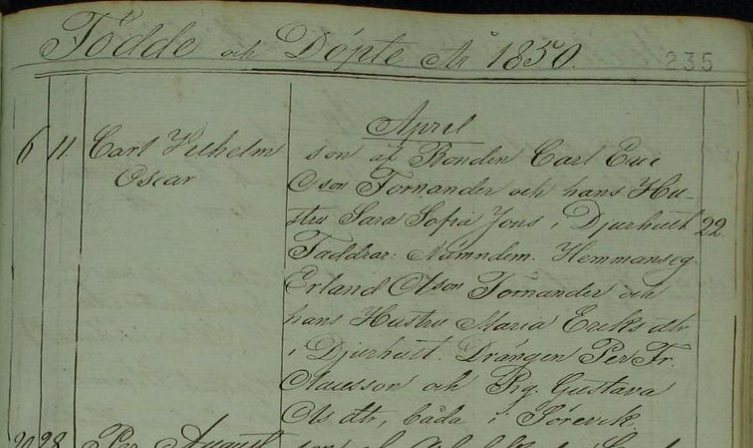 Födde och Döpte År 1850.
235
April
6 11 Carl Vilhelm son af Bonden Carl Eric
Oscar Oson Tornander och hans Hu-
stru Sara Sofia Jons i Djurhult 22
Faddrar: Nämndem. Hemmanseg
Erland Olson Tornander och
hans Hustru Maria Ericks dtr
i Djurhult. Drängen Per Fr.
Olausson och Pig. Gustava
Ols dtr, båda i
20 28 Per August son af